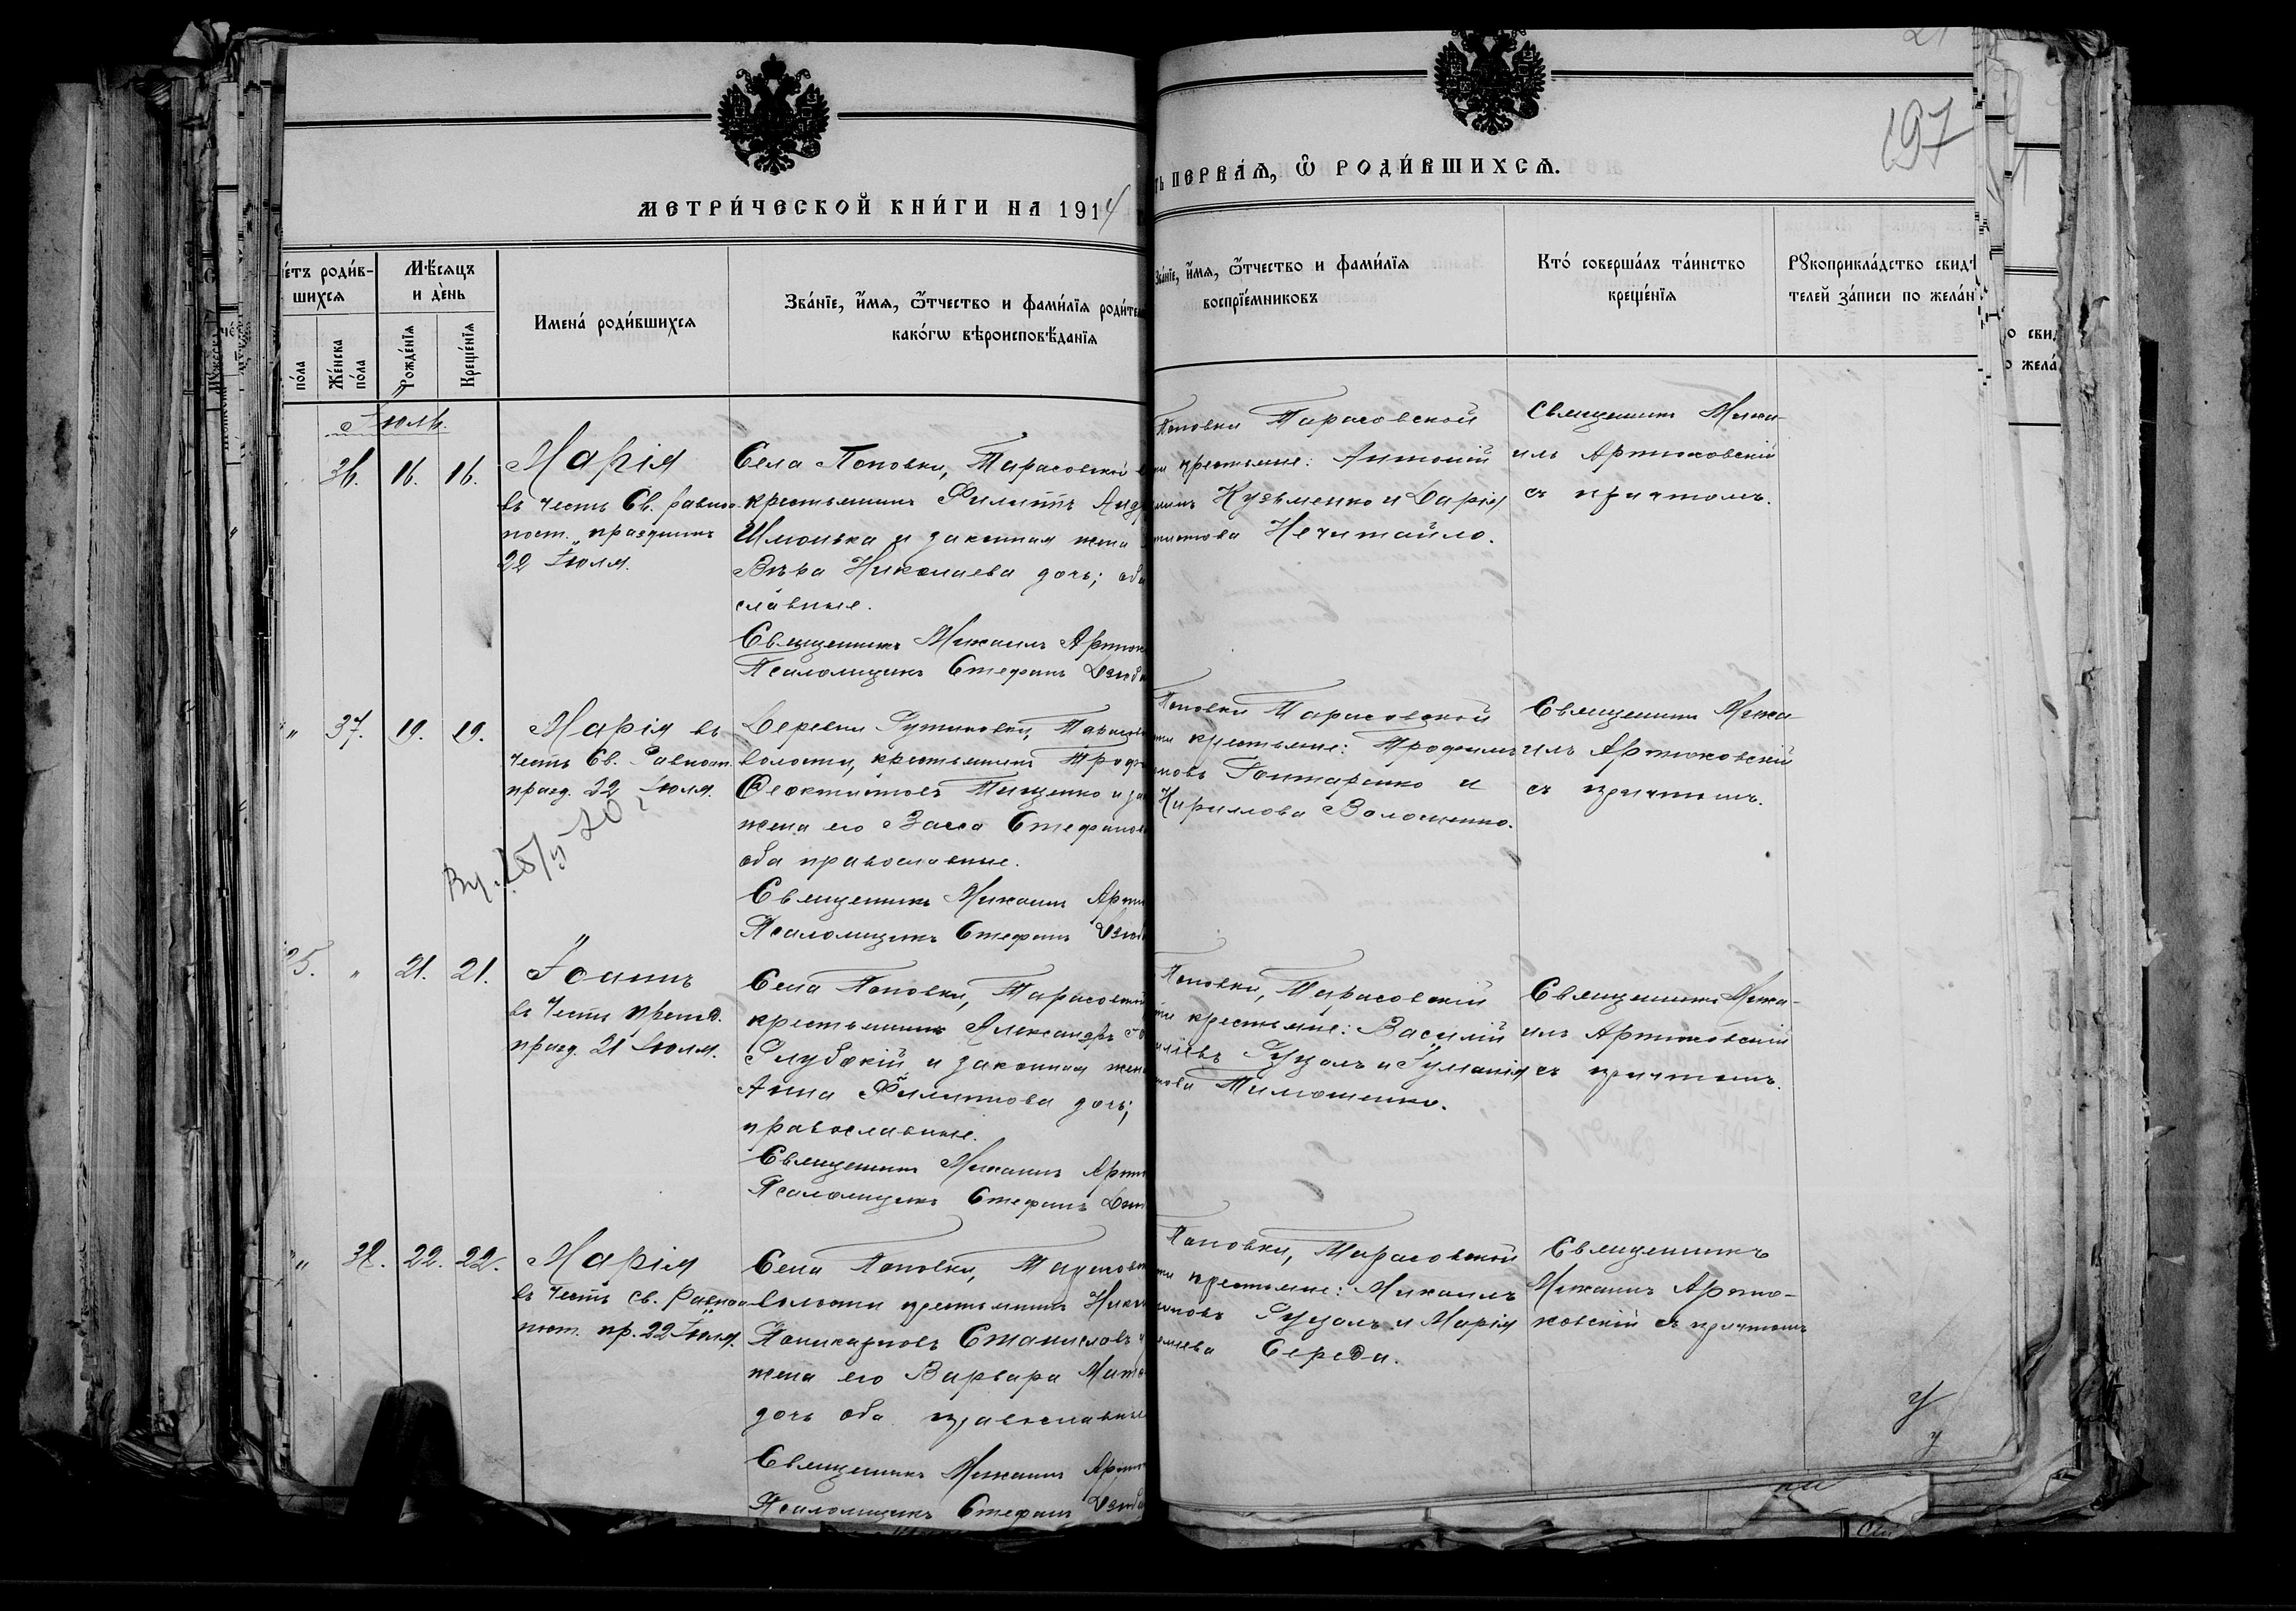 МЕТРИ́ЧЕСКОЙ КНИ́ГИ НА 1914
ПЕРВА́Ѧ, Ѽ РОДИ́ВШИХСѦ.
197
е́тъ роди́в-
шихсѧ
по́ла
Же́нска
по́ла
Мѣ́сѧцъ
и де́нь
Рожде́нїѧ
Креще́нїѧ
Имена́ роди́вшихсѧ
Зва́нїе, и́мѧ, ѻ́тчество и фами́лїѧ роди́те
како́гѡ вѣроисповѣ́данїѧ
Зва́нїе, и́мѧ, ѻ́тчество и фами́лїѧ
воспрїе́мниковъ
Кто́ соверша́лъ та́инство
креще́нїѧ
Рꙋкоприкла́дство свидѣ
телей за́писи по жела́н
Іюль.
36. 16. 16.
Марія
въ честь Св. равно-
пост. праздникъ
22 Іюля.
Села Поповки, Тарасовской
крестьянинъ Филиппъ Анд
Шмонька и законная жена
Вѣра Николаева дочь; оба
славные.
Священникъ Михаилъ Артюх
Псаломщикъ Стефанъ Дзюб
Поповки Тарасовской
крестьяне: Антоній
Кузьменко и Дарія
Нечитайло.
Священникъ Миха-
илъ Артюховскій
съ причтомъ.
" 37. 19. 19.
Марія въ
честь Св. Равноап.
празд. 22 Іюля.
Деревни
волости, крестьянинъ Троф
Ѳеоктистовъ Тищенко и за
жена его Васса Стефанов
оба православные.
Священникъ Михаилъ Артю
Псаломщикъ Стефанъ Дзюб
Поповки Тарасовской
крестьяне: Трофимъ
Гонтаренко и
Кириллова Волошенко.
Священникъ Миха-
илъ Артюховскій
съ причтомъ.
35. " 21. 21.
Іоаннъ
въ честь препод.
празд. 21 Іюля.
Села Поповки, Тарасовской
крестьянинъ Александръ
Глубокій и законная жена
Анна Филиппова дочь;
православные.
Священникъ Михаилъ Артю
Псаломщикъ Стефанъ Дзю
Поповки, Тарасовской
крестьяне: Василій
Гуцалъ и Гуланія
Тимошенко.
Священникъ Миха-
илъ Артюховскій
съ причтомъ.
" 38. 22. 22.
Марія
въ честь св. Равноа-
пост. пр. 22 Іюля.
Села Поповки, Тарасовск
волости крестьянинъ Ники
Поликарповъ Станиславъ и
жена его Варвара Мат
дочь оба православные
Священникъ Михаилъ Артю
Псаломщикъ Стефанъ Дзюба
Поповки, Тарасовской
крестьяне: Михаилъ
Гуцалъ и Марія
Середа.
Священникъ
Михаилъ Артю-
ховскій съ причтомъ